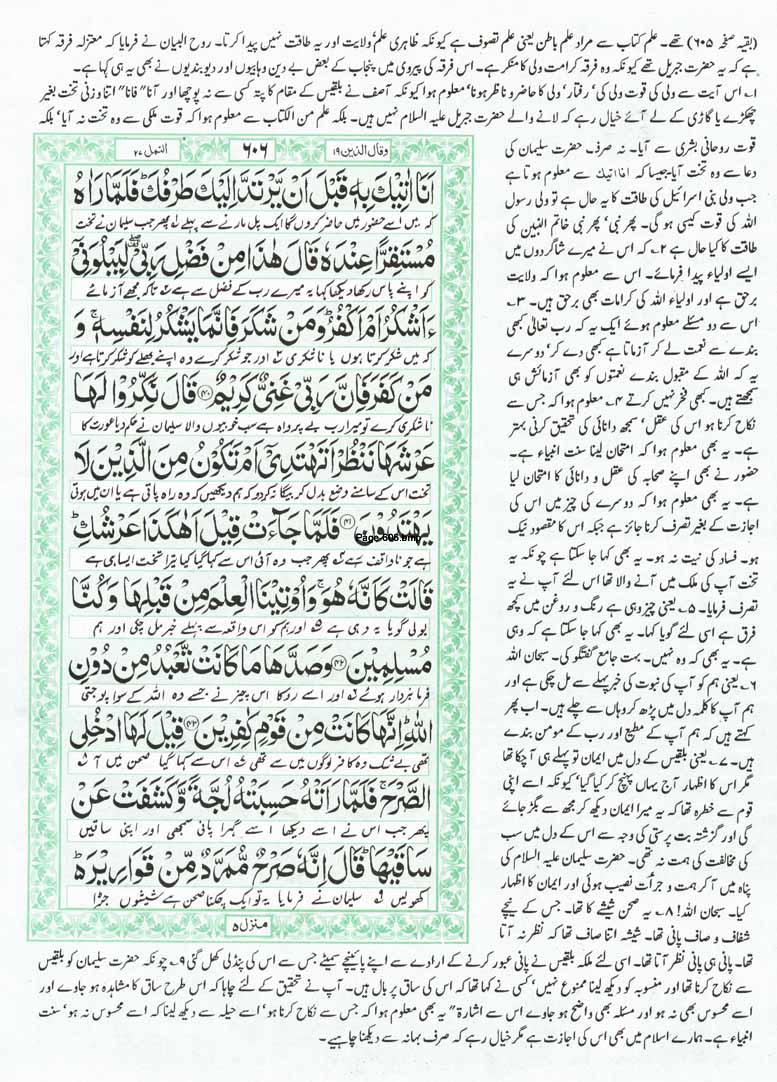 (بقیہ صفحہ ۶۰۵) تھے۔ علم کتاب سے مراد علم باطن یعنی علم تصوف ہے کیونکہ ظاہری علم‘ ولایت اور یہ طاقت نہیں پیدا کرتا۔ روح البیان نے فرمایا کہ معتزلہ فرقہ کہتا
ہے کہ یہ حضرت جبریل تھے کیونکہ وہ فرقہ کرامت ولی کا منکر ہے۔ اس فرقہ کی پیروی میں پنجاب کے بعض بے دین وہابیوں اور دیوبندیوں نے بھی یہ ہی کہا ہے۔
۱۔ اس آیت سے ولی کی قوت ولی کی‘ رفتار‘ ولی کا حاضر و ناظر ہونا‘ معلوم ہوا کیونکہ آصف نے بلقیس کے مقام کا پتہ کسی سے نہ پوچھا اور آنا" فانا" اتنا وزنی تخت بغیر
چھکڑے یا گاڑی کے لے آئے خیال رہے کہ لانے والے حضرت جبریل علیہ السلام نہیں ہیں۔ بلکہ علم من الکتاب سے معلوم ہوا کہ قوت ملکی سے وہ تخت نہ آیا‘ بلکہ
قوت روحانی بشری سے آیا۔ نہ صرف حضرت سلیمان کی
دعا سے وہ تخت آیا جیسا کہ انا اتیک سے معلوم ہوتا ہے
جب ولی بنی اسرائیل کی طاقت کا یہ حال ہے تو ولی رسول
اللہ کی قوت کیسی ہو گی۔ پھر نبی‘ پھر نبی خاتم النبین کی
طاقت کا کیا حال ہے ۲۔ کہ اس نے میرے شاگردوں میں
ایسے اولیاء پیدا فرمائے۔ اس سے معلوم ہوا کہ ولایت
برحق ہے اور اولیاء اللہ کی کرامات بھی برحق ہیں۔ ۳۔
اس سے دو مسئلے معلوم ہوئے ایک یہ کہ رب تعالیٰ کبھی
بندے سے نعمت لے کر آزماتا ہے کبھی دے کر‘ دوسرے
یہ کہ اللہ کے مقبول بندے نعمتوں کو بھی آزمائش ہی
سمجھتے ہیں۔ کبھی فخر نہیں کرتے ۴۔ معلوم ہوا کہ جس سے
نکاح کرنا ہو اس کی عقل‘ سمجھ دانائی کی تحقیق کرنی بہتر
ہے۔ یہ بھی معلوم ہوا کہ امتحان لینا سنت انبیاء ہے۔
حضور نے بھی اپنے صحابہ کی عقل و دانائی کا امتحان لیا
ہے۔ یہ بھی معلوم ہوا کہ دوسرے کی چیز میں اس کی
اجازت کے بغیر تصرف کرنا جائز ہے جبکہ اس کا مقصود نیک
ہو۔ فساد کی نیت نہ ہو۔ یہ بھی کہا جا سکتا ہے چونکہ یہ
تخت آپ کی ملک میں آنے والا تھا اس لئے آپ نے یہ
تصرف فرمایا۔ ۵۔ یعنی چیز وہی ہے رنگ و روغن میں کچھ
فرق ہے اسی لئے گویا کہا۔ یہ بھی کہا جا سکتا ہے کہ وہی
ہے۔ یہ بھی کہ وہ نہیں۔ بہت جامع گفتگو کی۔ سبحان اللہ
۶۔ یعنی ہم کو آپ کی نبوت کی خبر پہلے سے مل چکی ہے اور
ہم آپ کا کلمہ دل میں پڑھ کر وہاں سے چلے ہیں۔ اب پھر
کہتے ہیں کہ ہم آپ کے مطیع اور رب کے مومن بندے
ہیں۔ ۷۔ یعنی بلقیس کے دل میں ایمان تو پہلے ہی آ چکا تھا
مگر اس کا اظہار آج یہاں پہنچ کر کیا گیا‘ کیونکہ اسے اپنی
قوم سے خطرہ تھا کہ یہ میرا ایمان دیکھ کر مجھ سے بگڑ جائے
گی اور گزشتہ بت پرستی کی وجہ سے اس کے دل میں سب
کی مخالفت کی ہمت نہ تھی۔ حضرت سلیمان علیہ السلام کی
پناہ میں آ کر ہمت و جرأت نصیب ہوئی اور ایمان کا اظہار
کیا۔ سبحان اللہ! ۸۔ یہ صحن شیشے کا تھا۔ جس کے نیچے
شفاف و صاف پانی تھا۔ شیشہ اتنا صاف تھا کہ نظر نہ آتا
وقال الذین ۱۹
۶۰۶
النمل ۲۷
اَنَا اٰتِیْكَ بِهٖ قَبْلَ اَنْ یَّرْتَدَّ اِلَیْكَ طَرْفُكَ ؕ فَلَمَّا رَاٰهُ
کہ میں اسے حضور میں حاضر کر دوں گا ایک پل مارنے سے پہلے پھر جب سلیمان نے تخت
مُسْتَقِرًّا عِنْدَهٗ قَالَ هٰذَا مِنْ فَضْلِ رَبِّیْ ۫ لِیَبْلُوَنِیْۤ
کو اپنے پاس رکھا دیکھا کہا یہ میرے رب کے فضل سے ہے تاکہ مجھے آزمائے
ءَاَشْكُرُ اَمْ اَكْفُرُ ؕ وَ مَنْ شَكَرَ فَاِنَّمَا یَشْكُرُ لِنَفْسِهٖ ۚ وَ
کہ میں شکر کرتا ہوں یا ناشکری اور جو شکر کرے وہ اپنے بھلے کو شکر کرتا ہے اور
مَنْ كَفَرَ فَاِنَّ رَبِّیْ غَنِیٌّ كَرِیْمٌ ۝۴۰ قَالَ نَكِّرُوْا لَهَا
ناشکری کرے تو میرا رب بے پرواہ ہے سب خوبیوں والا سلیمان نے حکم دیا عورت کا
عَرْشَهَا نَنْظُرْ اَتَهْتَدِیْۤ اَمْ تَكُوْنُ مِنَ الَّذِیْنَ لَا
تخت اس کے سامنے وضع بدل کر بیگانہ کر دو کہ ہم دیکھیں کہ وہ راہ پاتی ہے یا ان میں ہوتی
یَهْتَدُوْنَ ۝۴۱ فَلَمَّا جَآءَتْ قِیْلَ اَهٰكَذَا عَرْشُكِ ؕ
Page 606.bmp
ہے جو ناواقف رہے پھر جب وہ آئی اس سے کہا گیا کیا تیرا تخت ایسا ہی ہے
قَالَتْ كَاَنَّهٗ هُوَ ۚ وَ اُوْتِیْنَا الْعِلْمَ مِنْ قَبْلِهَا وَ كُنَّا
بولی گویا یہ وہی ہے اور ہم کو اس واقعہ سے پہلے خبر مل چکی اور ہم
مُسْلِمِیْنَ ۝۴۲ وَ صَدَّهَا مَا كَانَتْ تَّعْبُدُ مِنْ دُوْنِ
فرمانبردار ہوئے اور اسے روکا اس چیز نے جسے وہ اللہ کے سوا پوجتی
اللّٰهِ ؕ اِنَّهَا كَانَتْ مِنْ قَوْمٍ كٰفِرِیْنَ ۝۴۳ قِیْلَ لَهَا ادْخُلِی
تھی بے شک وہ کافر لوگوں میں سے تھی اس سے کہا گیا صحن میں آ
الصَّرْحَ ۚ فَلَمَّا رَاَتْهُ حَسِبَتْهُ لُجَّةً وَّ كَشَفَتْ عَنْ
پھر جب اس نے اسے دیکھا اسے گہرا پانی سمجھی اور اپنی ساقیں
سَاقَیْهَا ؕ قَالَ اِنَّهٗ صَرْحٌ مُّمَرَّدٌ مِّنْ قَوَارِیْرَ ؕ
کھولیں سلیمان نے فرمایا یہ تو ایک چکنا صحن ہے شیشوں جڑا
منزل ۵
تھا۔ پانی ہی پانی نظر آتا تھا۔ اسی لئے ملکہ بلقیس نے پانی عبور کرنے کے ارادے سے اپنے پائینچے سمیٹے جس سے اس کی پنڈلی کھل گئی ۹۔ چونکہ حضرت سلیمان کو بلقیس
سے نکاح کرنا تھا اور منسوبہ کو دیکھ لینا ممنوع نہیں‘ کسی نے کہا تھا کہ اس کی ساق پر بال ہیں۔ آپ نے تحقیق کے لئے چاہا کہ اس طرح ساق کا مشاہدہ ہو جاوے اور
اسے محسوس بھی نہ ہو اور مسئلہ بھی واضح ہو جاوے اس سے اشارۃ" یہ بھی معلوم ہوا کہ جس سے نکاح کرنا ہو‘ اسے حیلہ سے دیکھ لینا کہ اسے محسوس نہ ہو‘ سنت
انبیاء ہے۔ ہمارے اسلام میں بھی اس کی اجازت ہے مگر خیال رہے کہ صرف بہانہ سے دیکھنا چاہیے۔